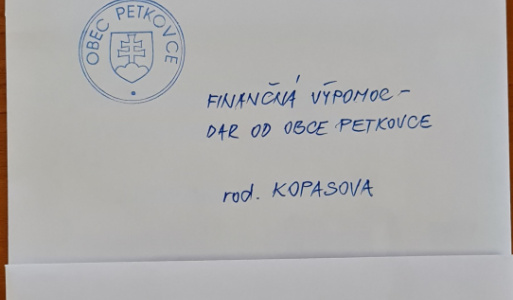 OBEC PETKOVCE
FINANČNÁ VÝPOMOC -
DAR OD OBCE PETKOVCE
rod. KOPASOVA